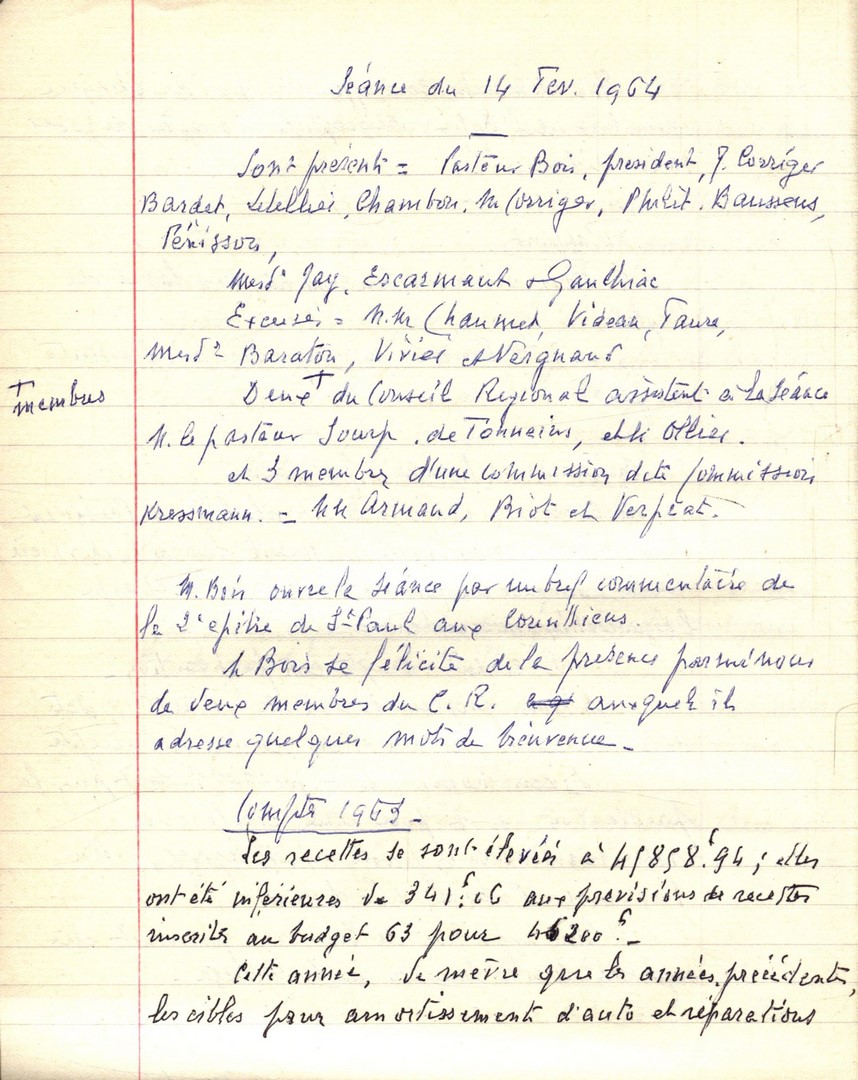 Séance du 14 Fev. 1964
Sont présents = Pasteur Bois, président, P. Corriger
Bardet, Letellier, Chambon, M Corriger, Philit. Baussens,
Ténisson,
Mesds Jay, Escarmant & Gauthiac
Excusés = M.M Chaumet, Videau, Faure,
Mesds Baraton, Vivies et Vergnaud
Deux + du Conseil Regional assistent à la Séance
+
membres
M. le pasteur Sourp, de Tonneins, et M Ollier.
et 3 membres d'une commission dite Commission
Kressmann. - MM Armand, Biot et Verpeat.
M. Bois ouvre la séance par un bref commentaire de
la 2e epitre de St Paul aux Corinthiens.
M Bois se félicite de la présence parmi nous
de deux membres du C. R. auxquels il
adresse quelques mots de bienvenue -
Compte 1963 -
Les recettes se sont élevées à 45858f.94 ; elles
ont été inférieures de 341f.06 aux prévisions de recettes
inscrites au budget 63 pour 46200f. -
Cette année, de même que les années précédentes,
les cibles pour amortissement d'auto et réparations